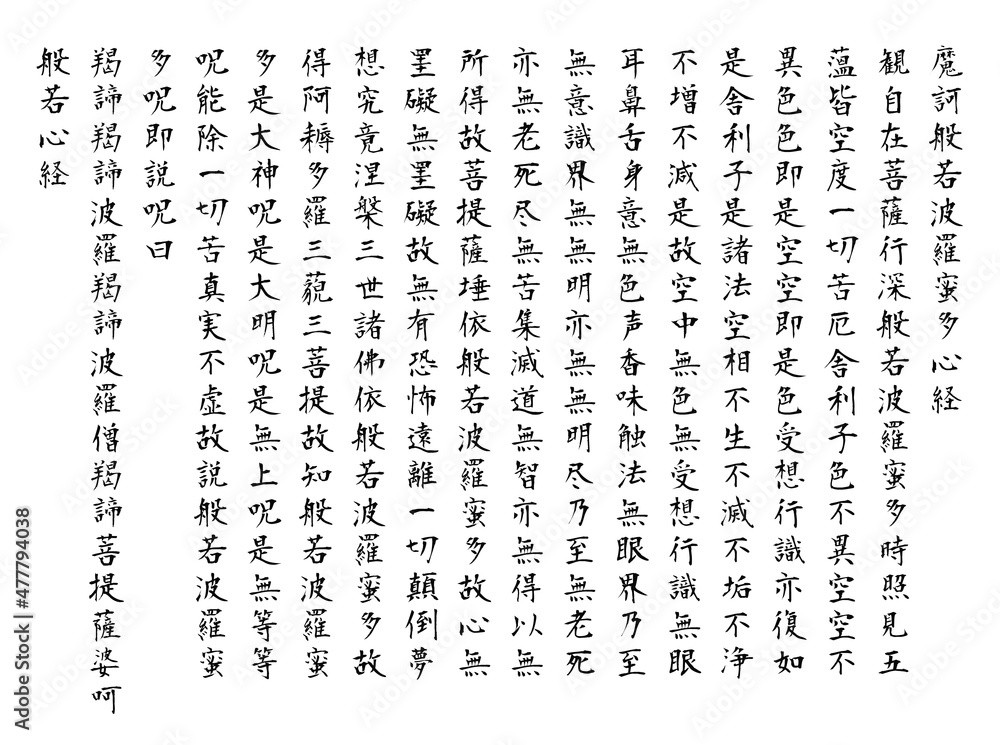 魔訶般若波羅蜜多心経
観自在菩薩行深般若波羅蜜多時照見五
薀皆空度一切苦厄舎利子色不異空空不
異色色即是空空即是色受想行識亦復如
是舎利子是諸法空相不生不滅不垢不浄
不増不減是故空中無色無受想行識無眼
耳鼻舌身意無色声香味触法無眼界乃至
無意識界無無明亦無無明尽乃至無老死
亦無老死尽無苦集滅道無智亦無得以無
所得故菩提薩埵依般若波羅蜜多故心無
罣礙無罣礙故無有恐怖遠離一切顛倒夢
想究竟涅槃三世諸佛依般若波羅蜜多故
得阿耨多羅三藐三菩提故知般若波羅蜜
多是大神呪是大明呪是無上呪是無等等
呪能除一切苦真実不虚故説般若波羅蜜
多呪即説呪曰
羯諦羯諦波羅羯諦波羅僧羯諦菩提薩婆呵
般若心経
Adobe Stock
Adobe Stock | #477794038